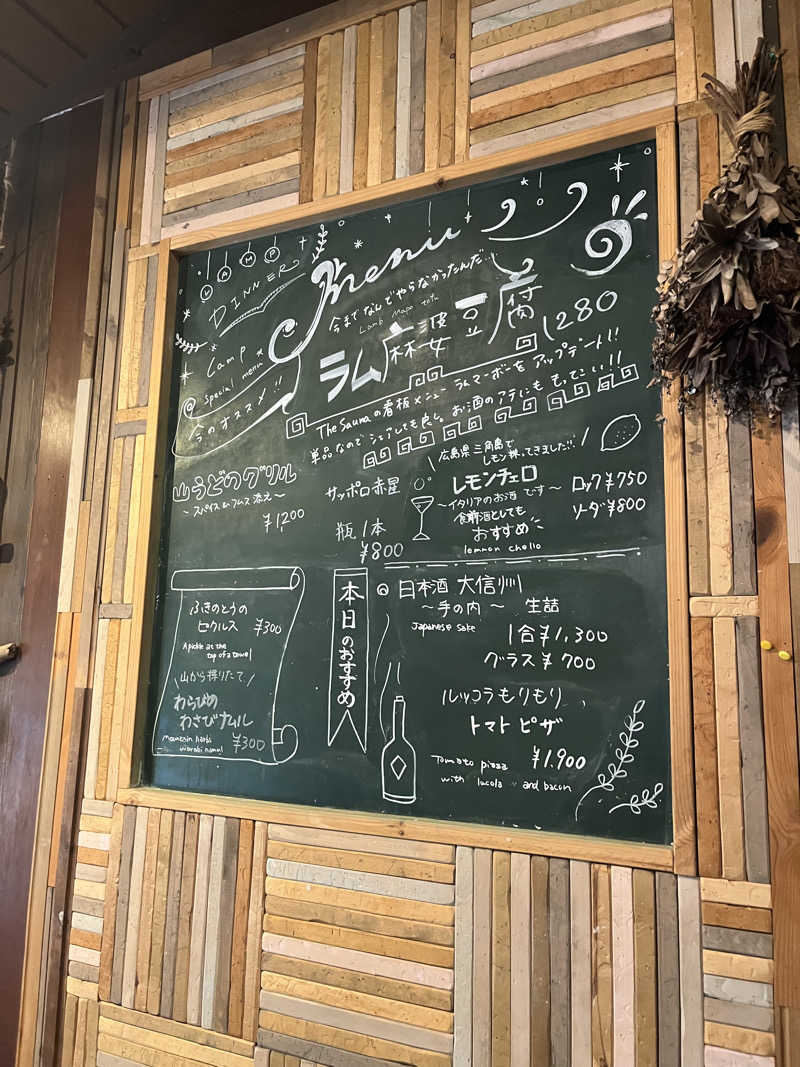 LAMP
DINNER
menu
Camp
special menu
今のオススメ!!
今までなんでやらなかったんだ
Lamb Mapo tofu
ラム麻婆豆腐 1280
The Saunaの看板メニューラムマーボーをアップデート!!
単品なのでシェアしても良し。お酒のアテにももってこい!!
山うどのグリル
～スパイス&フムス添え～
¥1,200
サッポロ赤星
瓶1本
¥800
広島県三角島で
レモン狩ってきました!!
レモンチェロ
～イタリアのお酒です～
食前酒としても
おすすめ
lemmon chello
ロック¥750
ソーダ¥800
ふきのとうの
ピクルス ¥300
A pickle at the
top of a towel
山から採りたて
わらびの
わさびナムル
mountain harbi
¥300
本日のおすすめ
日本酒 大信州
～手の内～ 生詰
Japanese sake
1合¥1,300
グラス¥700
ルッコラもりもり
トマトピザ
¥1,900
Tomato pizza
with lucola and bacon